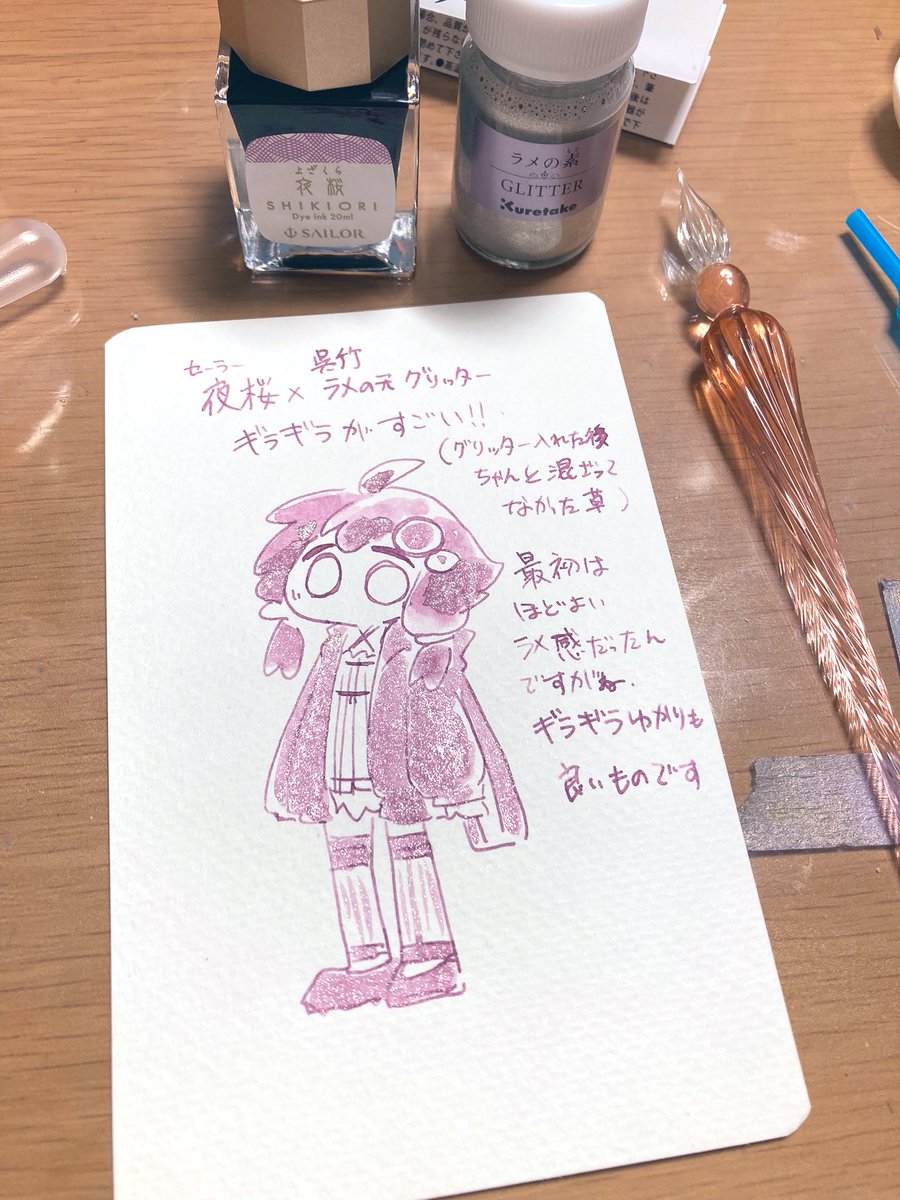 合、品質が
が残らない
閉めて下さ
よざくら
夜桜
SHIKIORI
Dye ink 20ml
SAILOR
ラメの素
GLITTER
Kuretake
セーラー 呉竹
夜桜×ラメの元グリッター
ギラギラがすごい!!
(グリッター入れた後
ちゃんと混ざって
なかった草)
最初は
ほどよい
ラメ感だったん
ですがね.
ギラギラゆかりも
良いものです